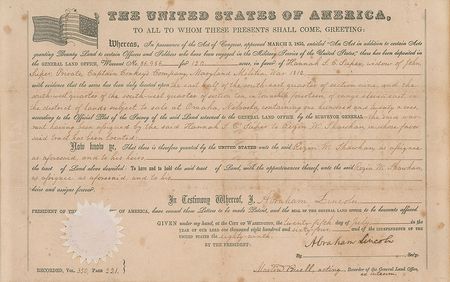 THE UNITED STATES OF AMERICA,
TO ALL TO WHOM THESE PRESENTS SHALL COME, GREETING:
Whereas, In pursuance of the Act of Congress, approved MARCH 3, 1855, entitled "An Act in addition to certain Acts
granting Bounty Land to certain Officers and Soldiers who have been engaged in the Military Service of the United States," there has been deposited in
the GENERAL LAND OFFICE, Warrant No. 86.956 for 120 acres, in favor of Hannah S. C. Super, widow of John
Super, Private Captain Company, Maryland Militia, War 1812
with evidence that the same has been duly located upon the east half of the south east quarter of section nine, and the
south west quarter of the south west quarter of section ten, in township of range
the district of lands subject to sale at Omaha, Nebraska, containing one hundred and twenty acres,
according to the Official Plat of the Survey of said Land returned to the GENERAL LAND OFFICE by the SURVEYOR GENERAL: the said warrant
having been assigned by the said Hannah S. C. Super to Rezin W. Shawhan in whose favor
said tract has been located
Now know ye, That there is therefore granted by the UNITED STATES unto the said Rezin W. Shawhan as assignee
as aforesaid, and to his heirs
the tract of Land above described: To have and to hold the said tract of Land, with the appurtenances thereof, unto the said Rezin W. Shawhan
as assignee as aforesaid, and to his
heirs and assigns forever.
In Testimony Whereof, I, Abraham Lincoln
PRESIDENT OF THE OF AMERICA, have caused these Letters to be made Patent, and the SEAL OF THE GENERAL LAND OFFICE to be hereunto affixed.
GIVEN under my hand, at the CITY OF WASHINGTON, the twenty fifth day of in the
YEAR OF OUR LORD one thousand eight hundred and sixty four and OF THE INDEPENDENCE OF THE
UNITED STATES the eighty ninth
BY THE PRESIDENT: Abraham Lincoln
By Sec'y.
RECORDED, VOL. 350, PAGE 221. acting Recorder of the General Land Office,
ad interim